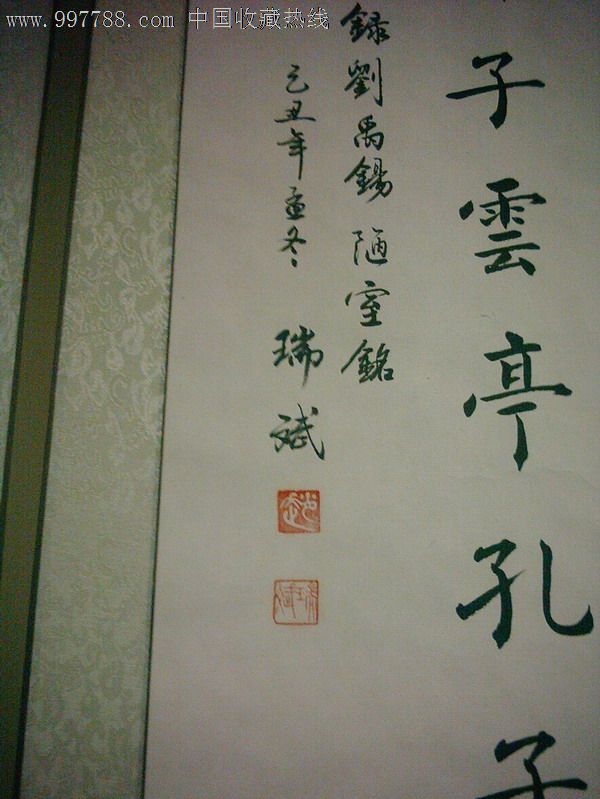 www.997788.com 中国收藏热线
子雲亭孔子
録劉禹錫陋室銘
己丑年孟冬 瑞斌